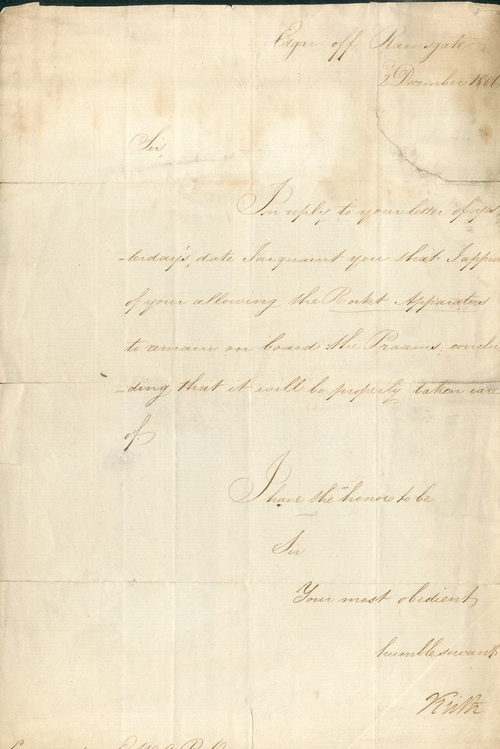 Edgar off Ramsgate
2d December 180
Sir,
In reply to your letter of yes
-terday's date I acquaint you that I appro
of your allowing the Rocket Apparatus
to remain on board the Praams, conclu
-ding that it will be properly taken care
of.
I have the honor to be
Sir
Your most obedient
humble servant
Keith